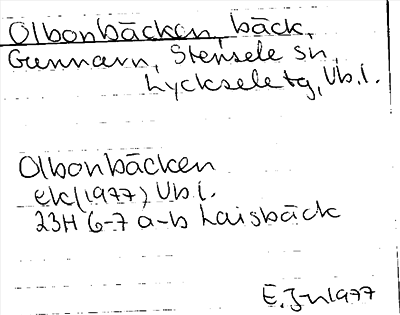 Olbonbäcken, bäck,
Gunnarn, Stensele sn,
Lycksele tg, Vb. l.
Olbonbäcken
ek (1977) Vb l.
23H 6-7 a-b Laisbäck
E. Jn 1977